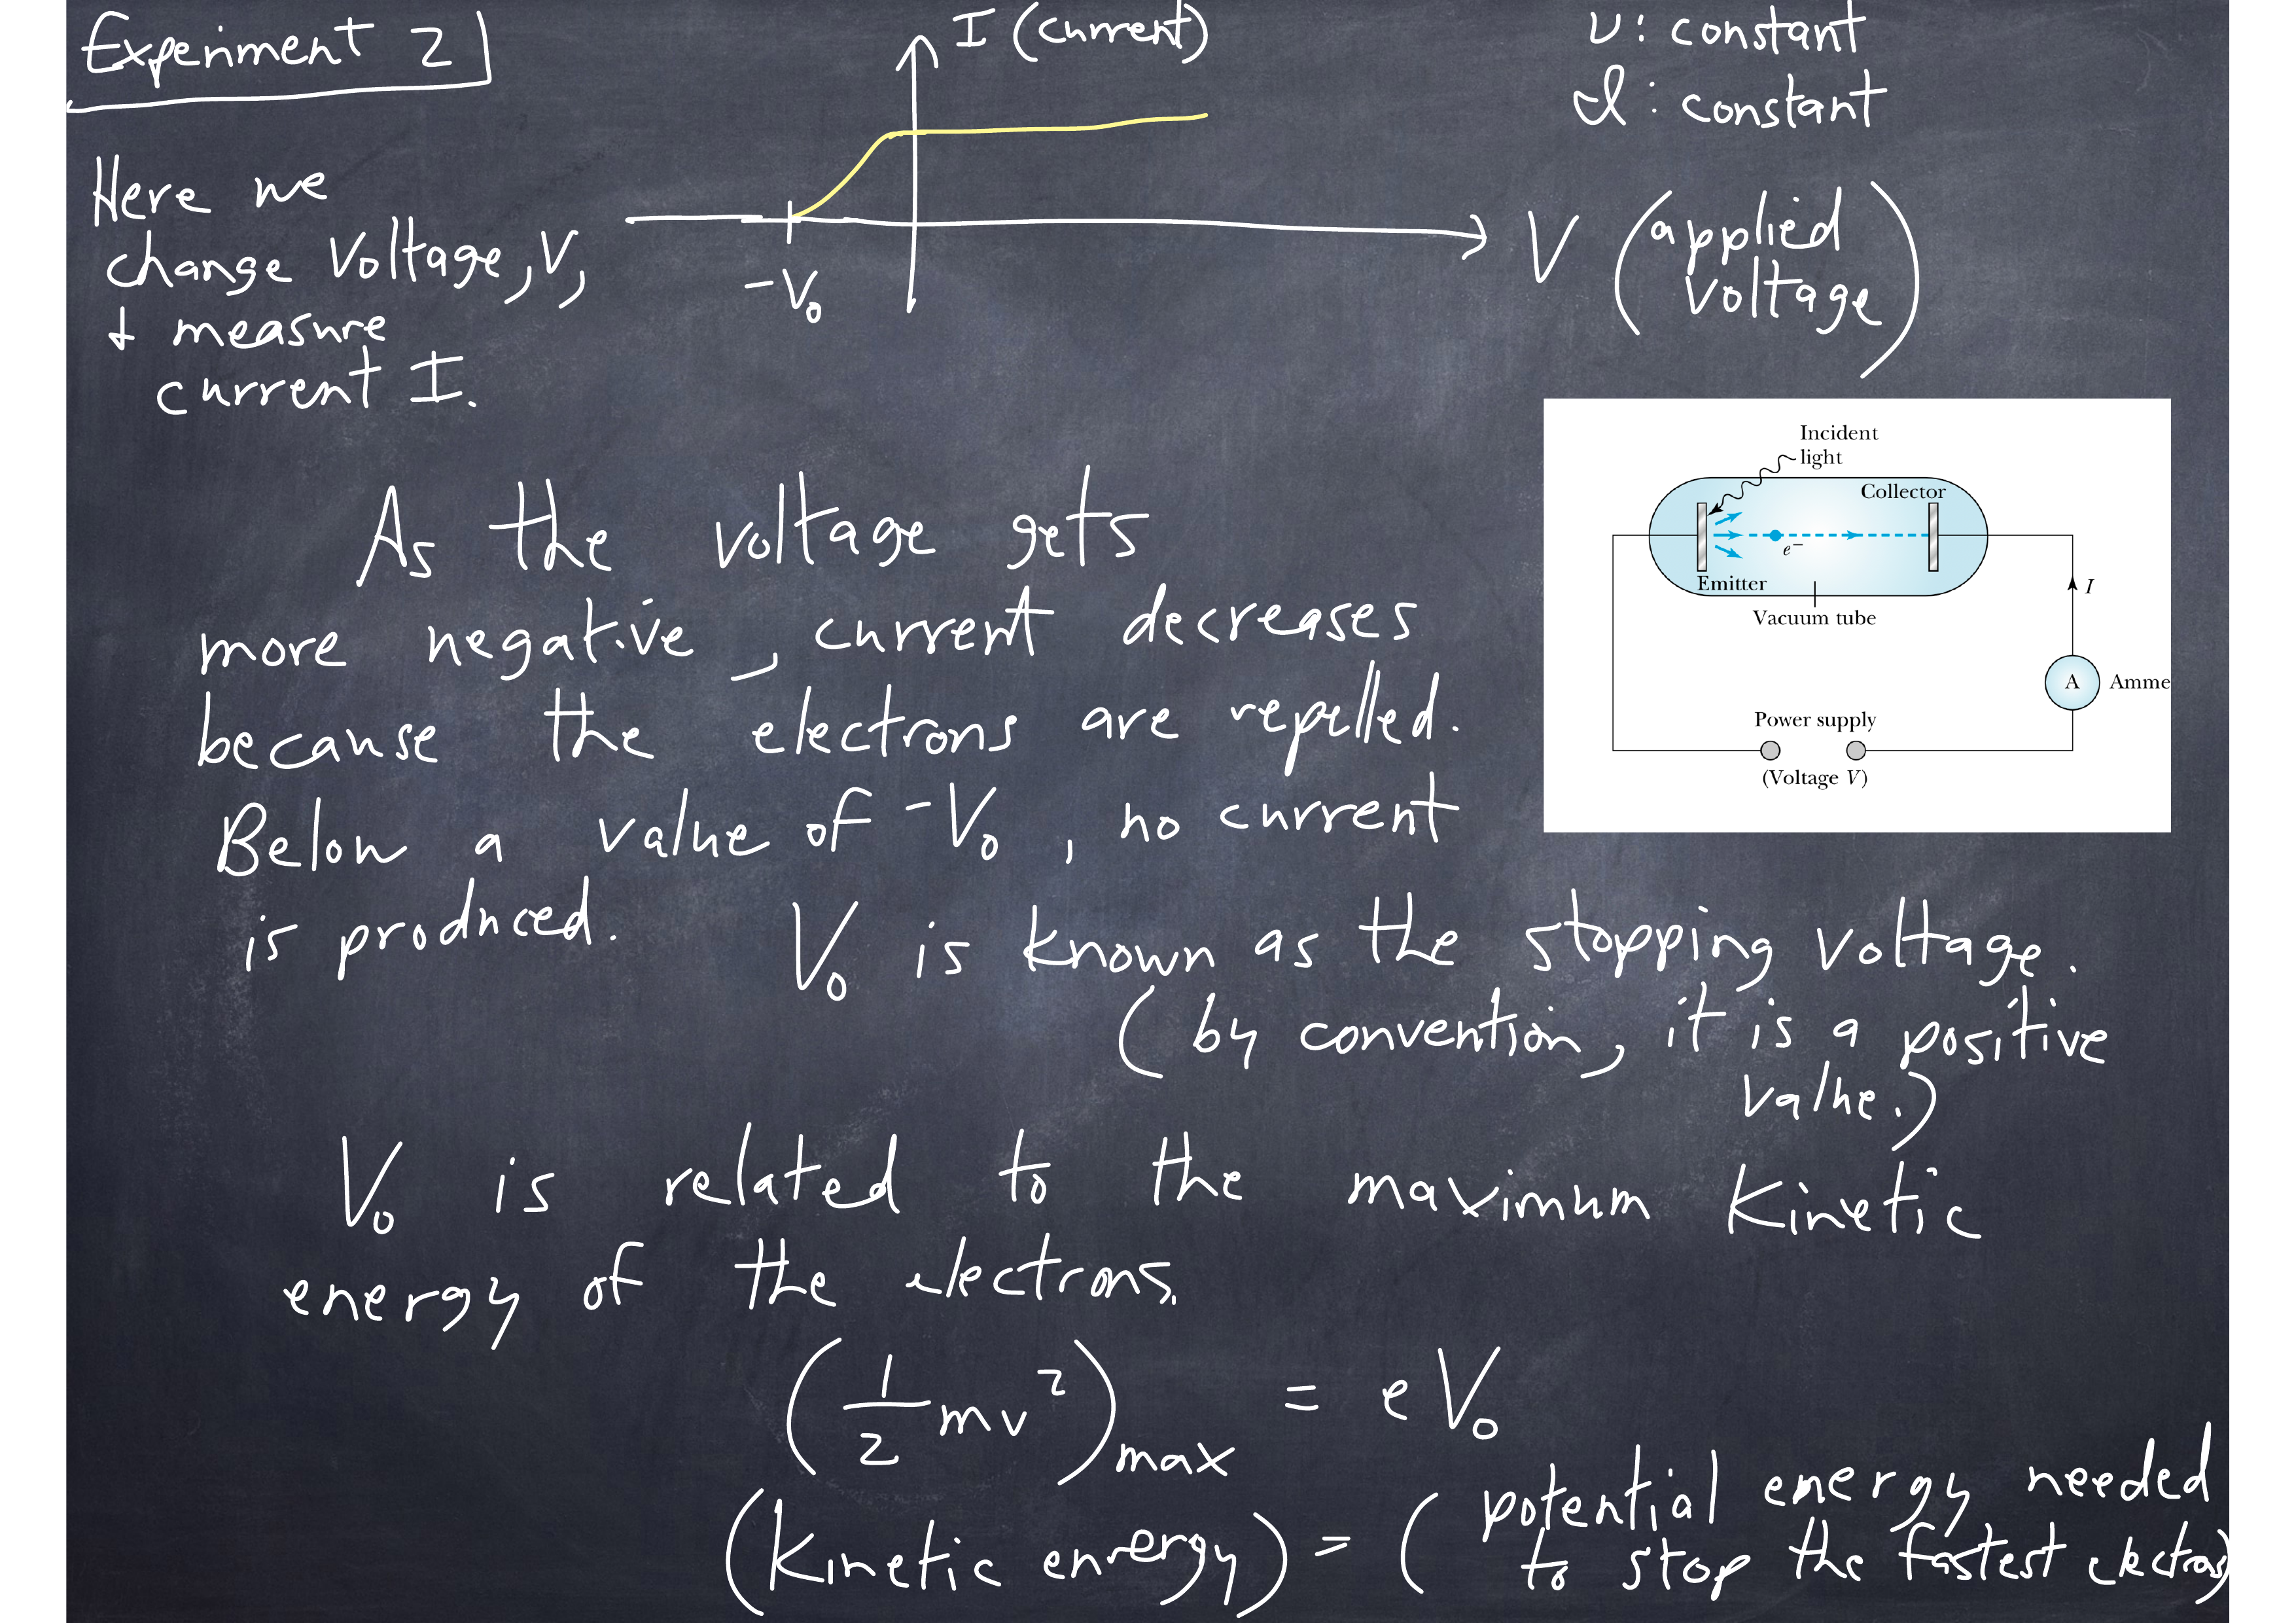 Experiment 2
I (current)
ν: constant
I: constant
Here we
change Voltage, V,
+ measure
current I.
-V₀
V (applied voltage)
Incident
light
Collector
e⁻
Emitter
Vacuum tube
I
A Amme
Power supply
(Voltage V)
As the voltage gets
more negative, current decreases
because the electrons are repelled.
Below a value of -V₀, no current
is produced. V₀ is known as the stopping voltage.
(by convention, it is a positive
value.)
V₀ is related to the maximum kinetic
energy of the electrons.
(1/2 mv²)max = eV₀
(kinetic energy) = (potential energy needed
to stop the fastest electrons)